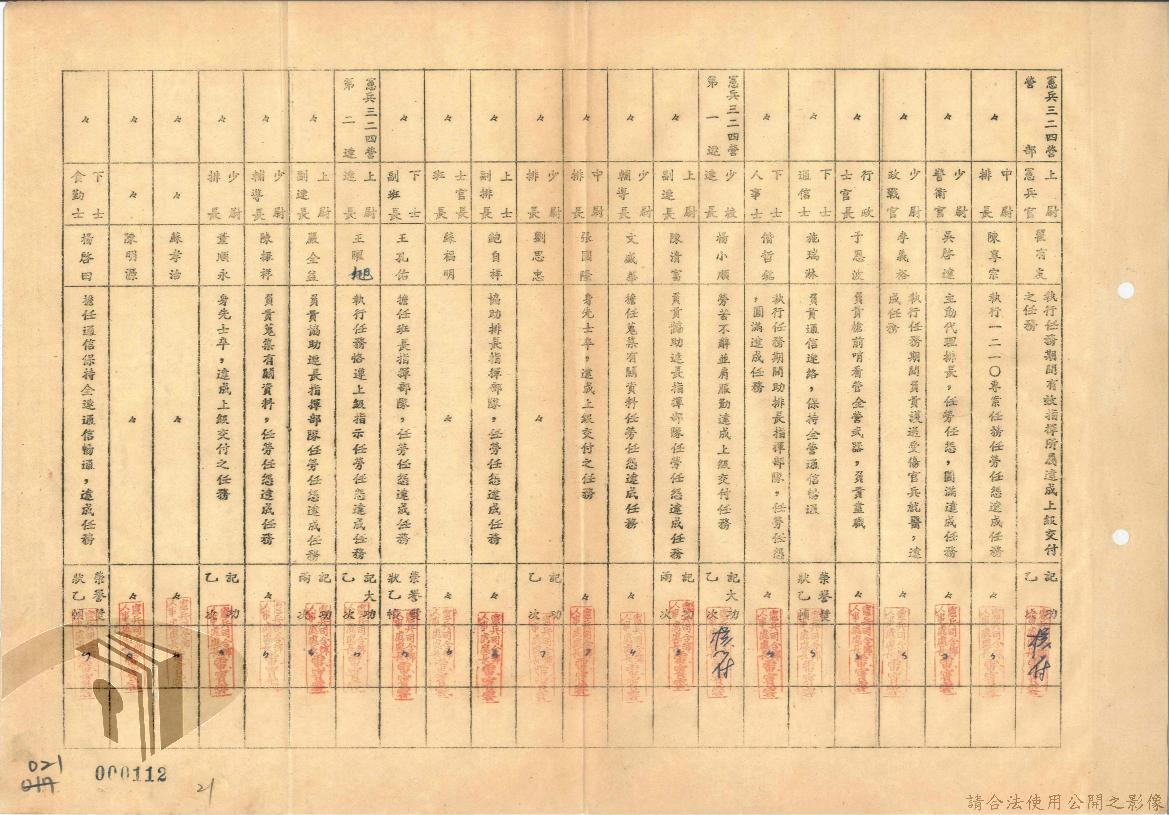 憲兵三二四營營部
上尉憲兵官
執行任務期間有效指揮所屬達成上級交付之任務
記功乙次
核付
〃
中尉排長
陳專宗
執行一二一〇專案任務任勞任怨達成任務
〃
〃
〃
少尉警衛官
吳啓達
主動代理排長,任勞任怨,圓滿達成任務
〃
〃
〃
少尉政戰官
李義裕
執行任務期間負責護送受傷官兵就醫,達成任務
〃
〃
〃
行政士官長
于恩波
負責營前哨看管全營武器,負責盡職
〃
〃
〃
下士通信士
施瑞淋
負責通信連絡,保持全營通信暢通
榮譽獎狀乙幀
〃
〃
下士人事士
執行任務期間助排長指揮部隊,任勞任怨,圓滿達成任務
〃
〃
憲兵三二四營第一連
少校連長
楊小順
勞苦不辭並肩服勤達成上級交付任務
記大功乙次
核付
〃
上尉副連長
陳清富
負責協助連長指揮部隊任勞任怨達成任務
記功兩次
〃
〃
少尉輔導長
文盛華
擔任蒐集有關資料任勞任怨達成任務
〃
〃
〃
中尉排長
張國隆
身先士卒,達成上級交付之任務
〃
〃
〃
少尉排長
劉思忠
〃
記功乙次
〃
〃
上士副排長
鮑自祥
協助排長指揮部隊,任勞任怨達成任務
〃
〃
〃
士官長班長
蘇福明
〃
〃
〃
〃
下士副班長
王孔佑
擔任班長指揮部隊,任勞任怨達成任務
榮譽獎狀乙幀
〃
憲兵三二四營第二連
上尉連長
王曜旭
執行任務恪遵上級指示任勞任怨達成任務
記大功乙次
〃
〃
上尉副連長
嚴金益
負責協助連長指揮部隊任勞任怨達成任務
記功兩次
〃
〃
少尉輔導長
陳振祥
負責蒐集有關資料,任勞任怨達成任務
〃
〃
〃
少尉排長
董順永
身先士卒,達成上級交付之任務
記功乙次
〃
〃
〃
蘇孝治
〃
〃
〃
〃
〃
陳明源
〃
〃
〃
〃
下士食勤士
楊啓田
擔任通信保持全連通信暢通,達成任務
榮譽獎狀乙幀
〃
021
017
000112
21
請合法使用公開之影像